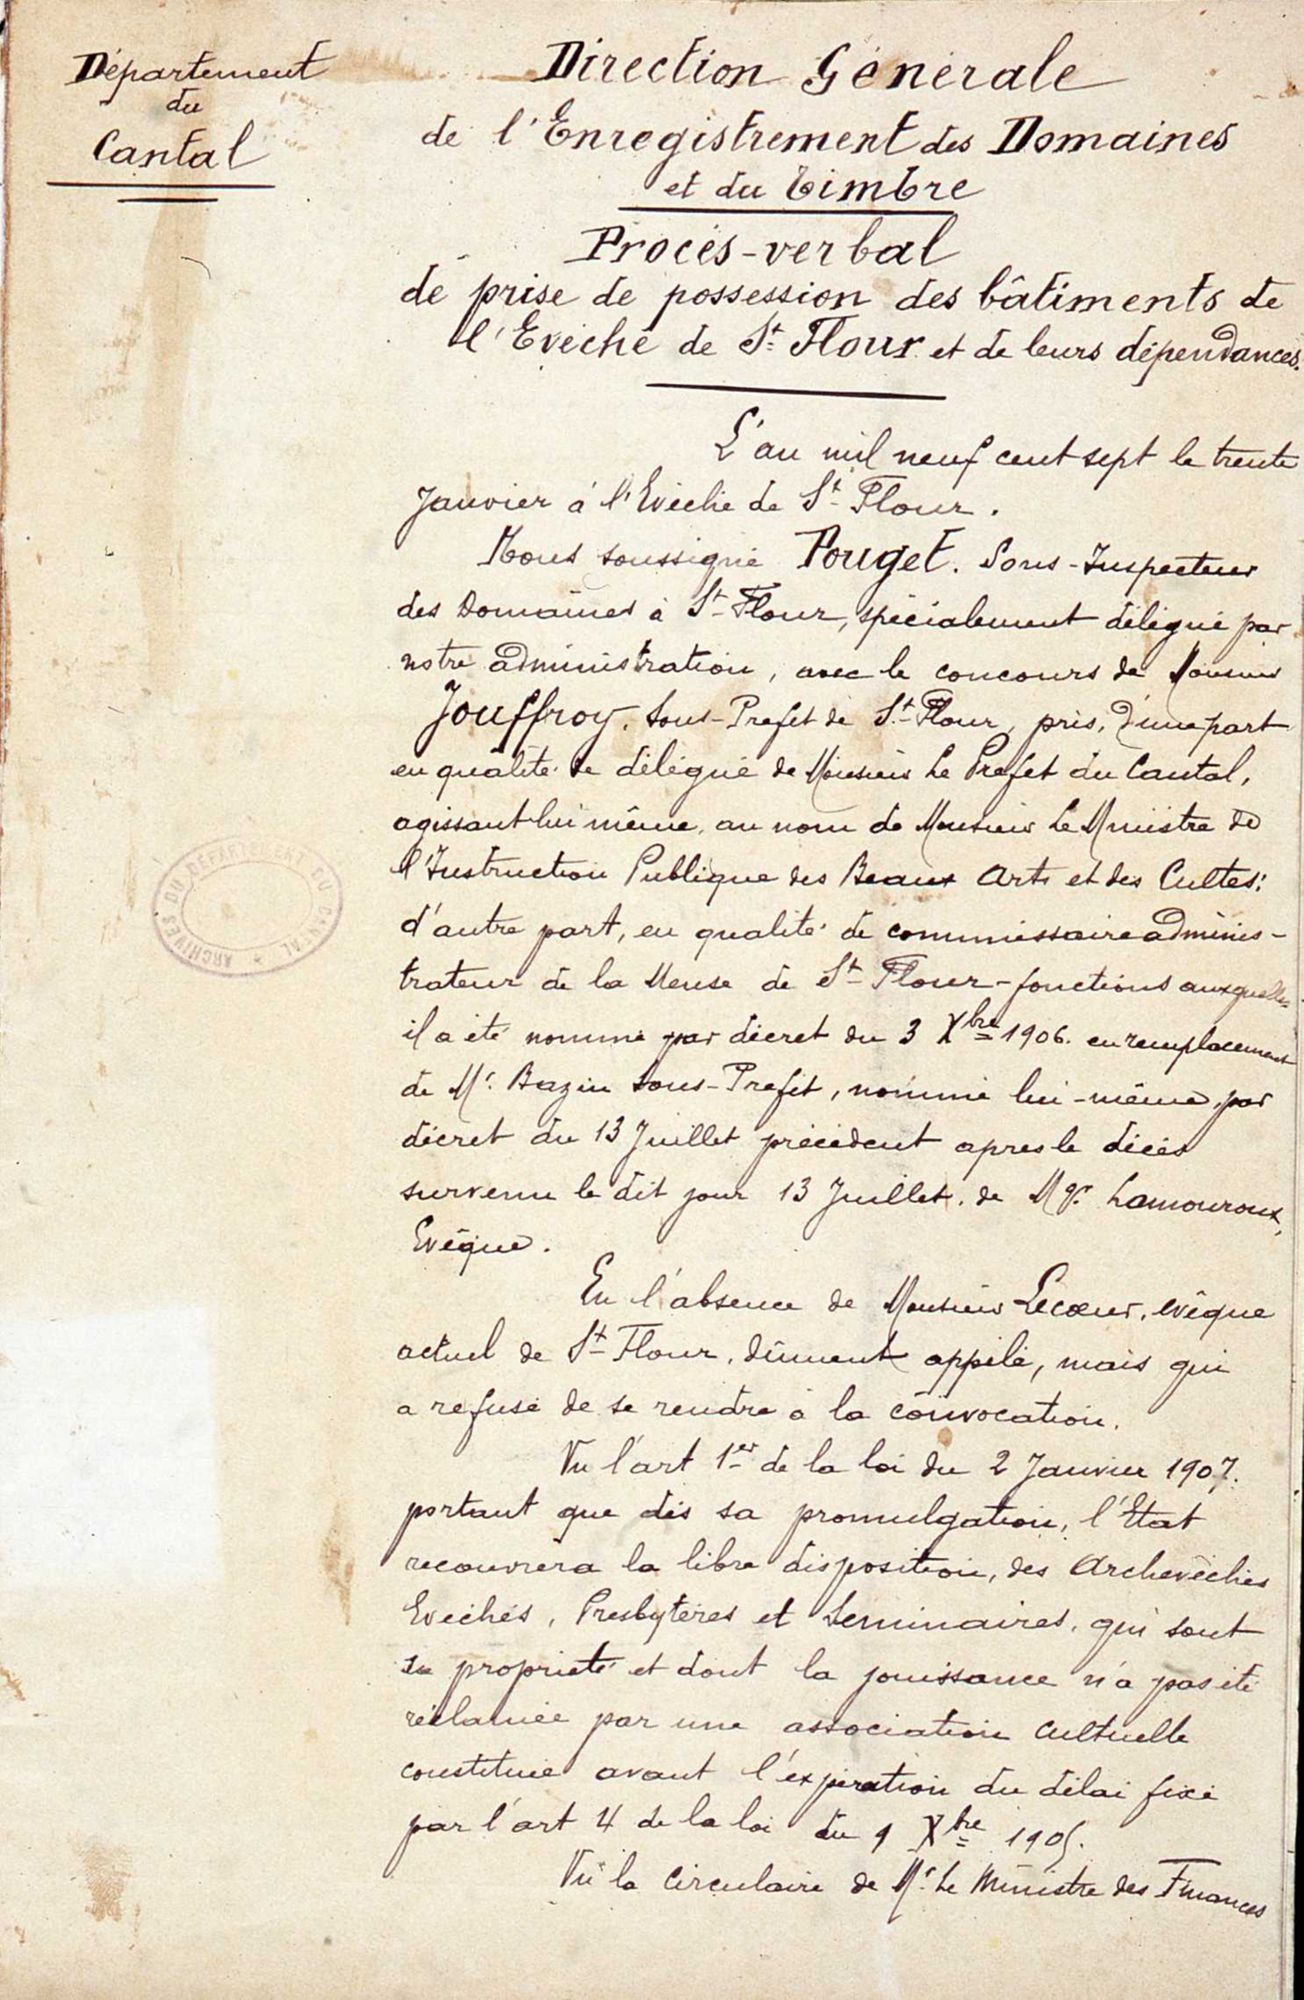 Département
du
Cantal
Direction Générale
de l'Enregistrement des Domaines
et du Timbre
Procès-verbal
de prise de possession des bâtiments de
l'Evêché de St Flour et de leurs dépendances.
L'an mil neuf cent sept le trente
Janvier à l'Evêché de St Flour.
Nous soussigné Pouget. Sous-Inspecteur
des Domaines à St Flour, spécialement délégué par
notre administration, avec le concours de Monsieur
Jouffroy. Sous-Préfet de St Flour, pris, d'une part
en qualité de délégué de Monsieur Le Préfet du Cantal,
agissant lui même, au nom de Monsieur Le Ministre de
l'Instruction Publique des Beaux Arts et des Cultes;
d'autre part, en qualité de commissaire adminis-
trateur de la Mense de St Flour - fonctions auxquelles
il a été nommé par décret du 3 Xbre 1906. en remplacement
de Mr. Bazin Sous-Préfet, nommé lui-même, par
décret du 13 Juillet précédent après le décès
survenu le dit jour 13 Juillet. de Mgr. Lamouroux,
Evêque.
En l'absence de Monsieur Lecœur, évêque
actuel de St Flour, dûment appelé, mais qui
a refusé de se rendre à la convocation.
Vu l'art 1er de la loi du 2 Janvier 1907.
portant que dès sa promulgation, l'Etat
recouvrera la libre disposition, des Archevêchés
Evêchés, Presbytères et Séminaires, qui sont
sa propriété et dont la jouissance n'a pas été
réclamée par une association cultuelle
constituée avant l'expiration du délai fixé
par l'art 4 de la loi du 9 Xbre 1905.
Vu la Circulaire de Mr. Le Ministre des Finances
ARCHIVES DU DÉPARTEMENT DU CANTAL